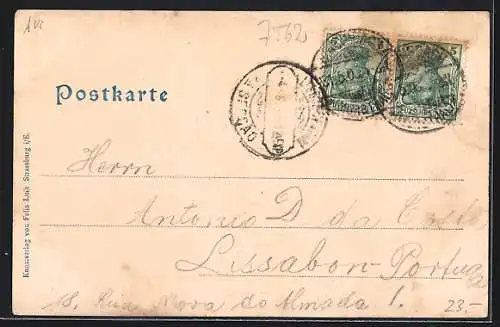 7T62
Postkarte
Kunstverlag von Felix Luib Strassburg i/E.
Herrn
Antonio D da Costa
Lissabon-Portugal
18. Rua Nova do Almada 1.
23.-